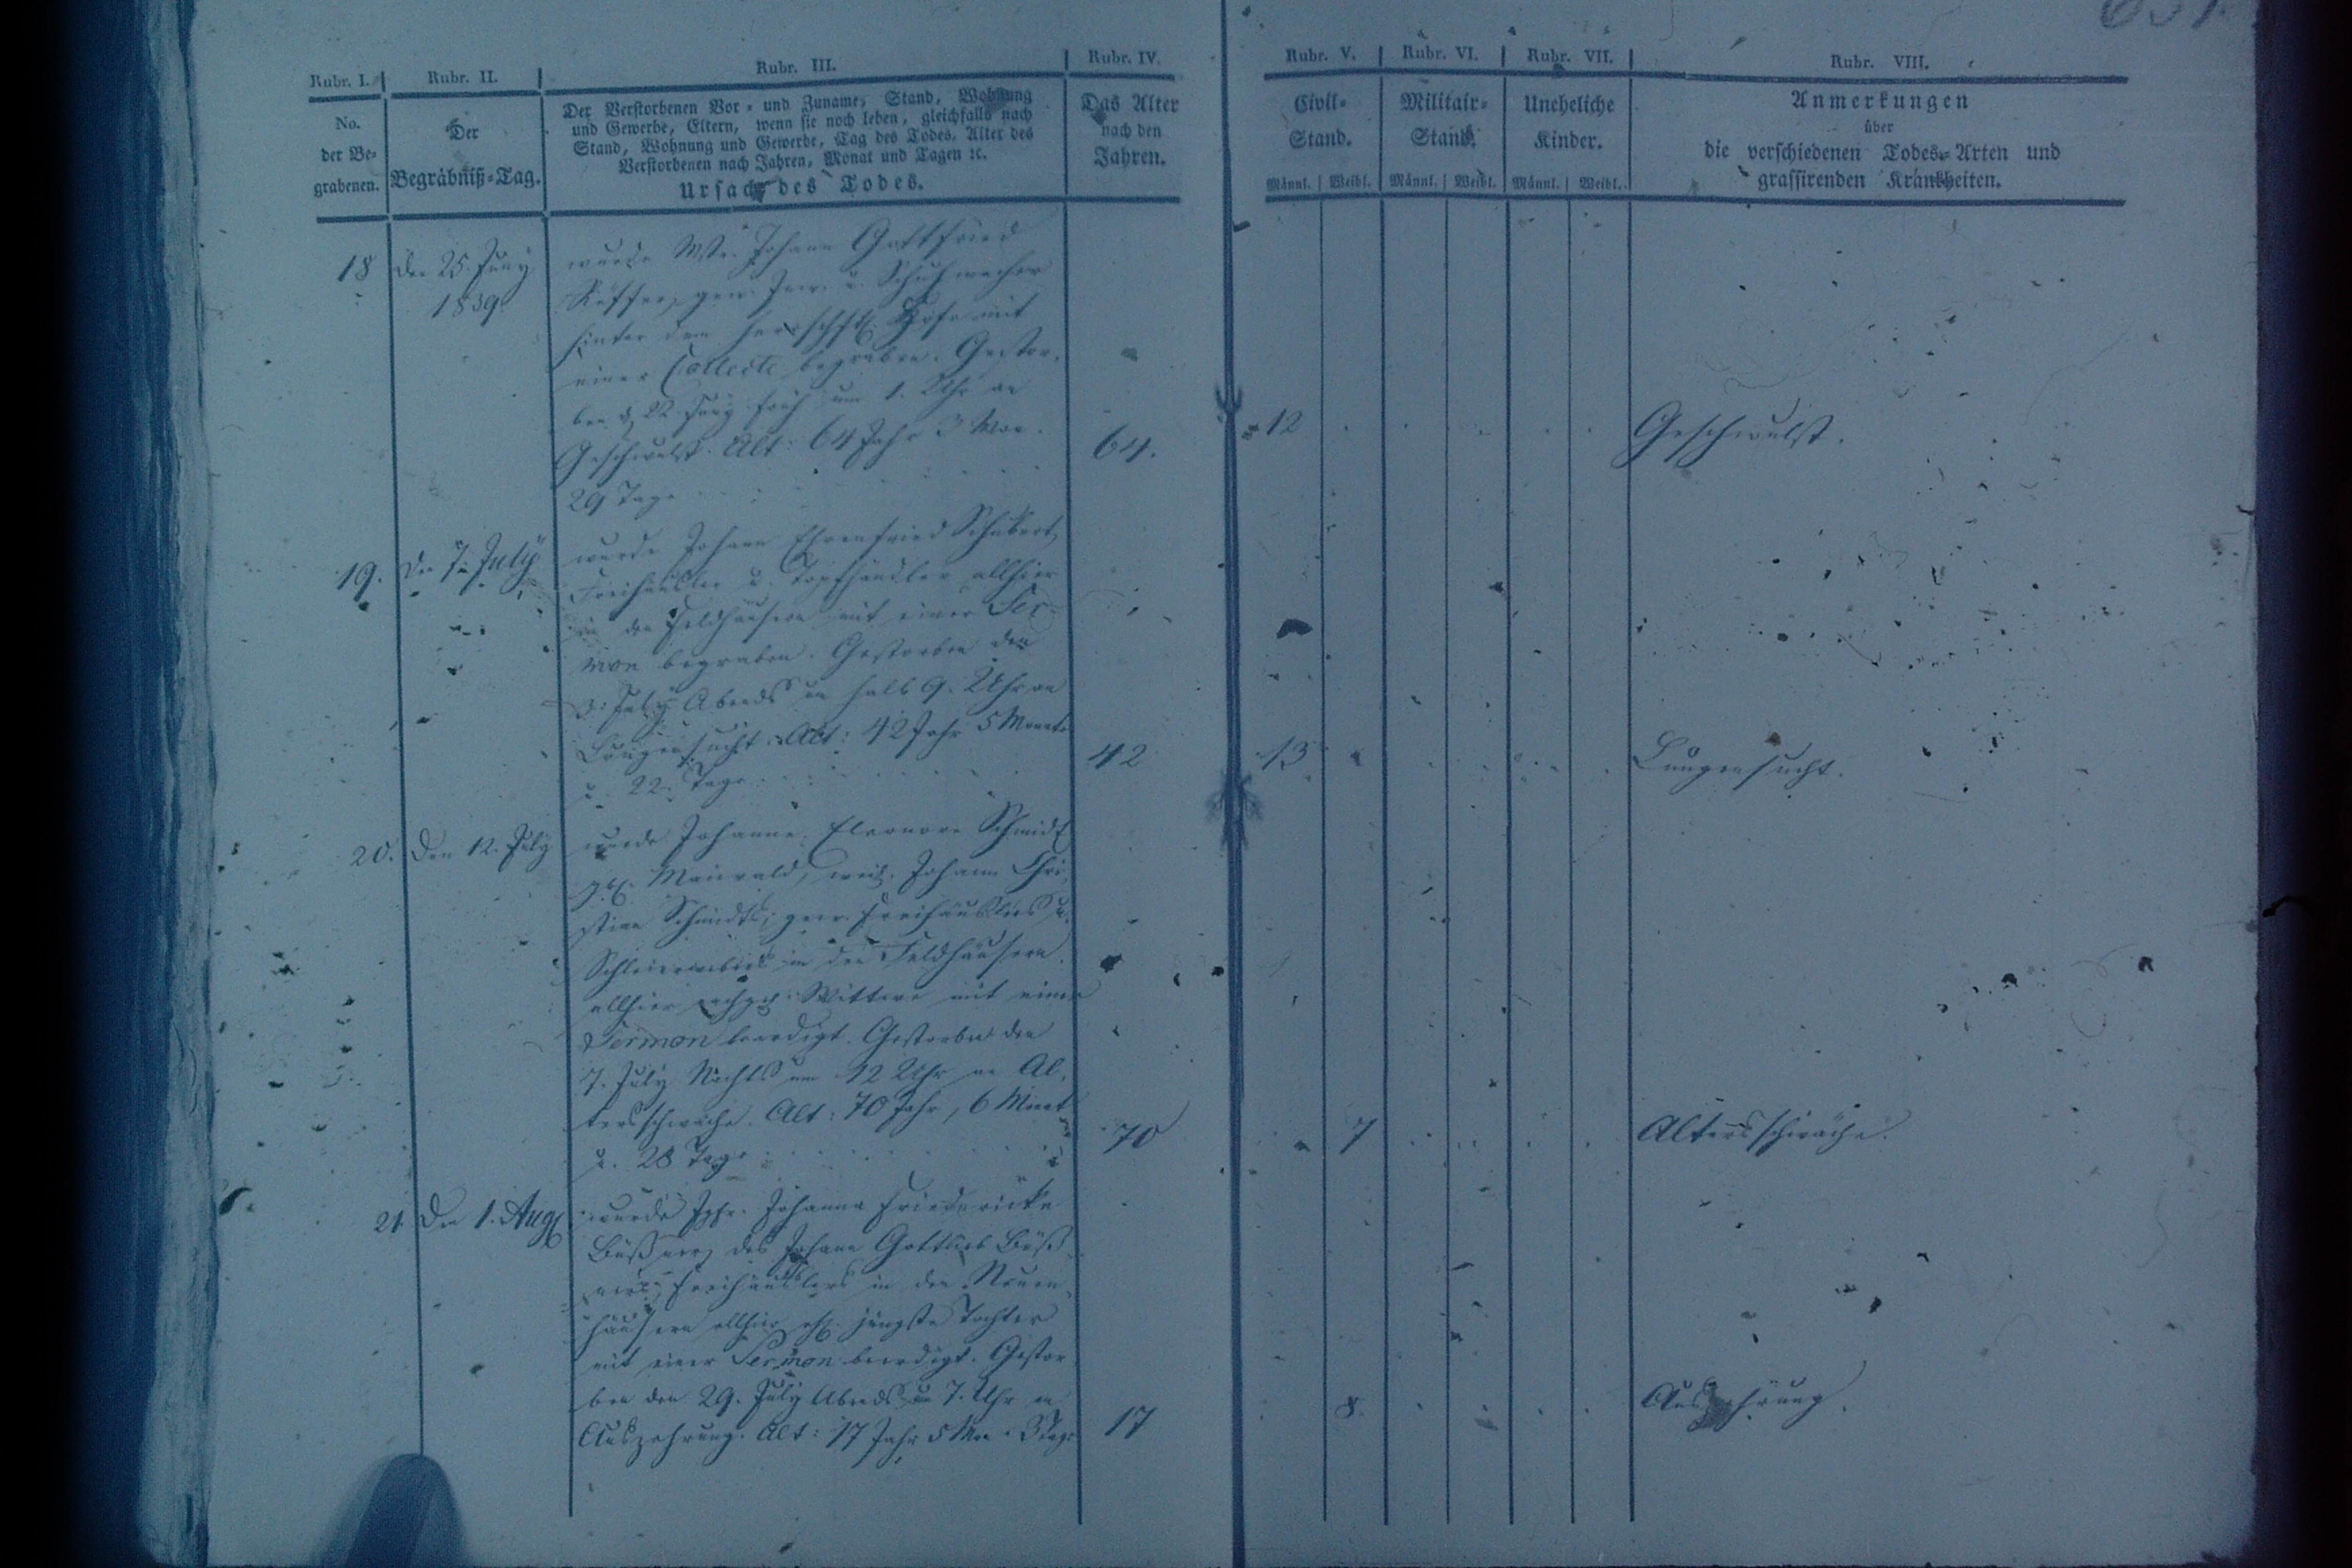 Rubr. I.
No.
der Be=
grabenen.
Rubr. II.
Der
Begräbniß=Tag.
Rubr. III.
Der Verstorbenen Vor = und Zuname, Stand, Wohnung
und Gewerbe, Eltern, wenn sie noch leben, gleichfalls nach
Stand, Wohnung und Gewerbe, Tag des Todes, Alter des
Verstorbenen nach Jahren, Monat und Tagen ꝛc.
Ursach des Todes.
Rubr. IV.
Das Alter
nach den
Jahren.
Rubr. V.
Civil=
Stand.
Männl. Weibl.
Rubr. VI.
Militair=
Stand.
Männl. Weibl.
Rubr. VII.
Uneheliche
Kinder.
Männl. Weibl.
Rubr. VIII.
Anmerkungen
über
die verschiedenen Todes=Arten und
grassirenden Krankheiten.
18
den 25. Juny
1839
wurde Mstr. Johann Gottfried
gew. Inw. u. Schuhmacher
hinter dem herrschftl. Hofe mit
einer Collecte begraben. Gestor=
ben d. 22. Juny früh um 1. Uhr an
Geschwulst. Alt: 64 Jahr 3 Mon.
29 Tage
64.
12
Geschwulst.
19.
den 7. July
wurde Johann Ehrenfried Schubert,
Freihäusler u. Topfhändler allhier
in den Feldhäusern mit einer Ser=
mon begraben. Gestorben den
3. July Abends um halb 9. Uhr an
Lungensucht. Alt: 42 Jahr 5 Monate
u. 22. Tage
42
13
Lungensucht.
20.
den 12. July
wurde Johanne Eleonore Schmidt
geb. Maiwald, weil. Johann Chri
stian Schmidts, gew. Freihäuslers u.
Schleierwebers in den Feldhäusern
allhier Wittwe mit einer
Sermon beerdigt. Gestorben den
7. July Nachts um 12 Uhr an Al=
tersschwäche. Alt: 70 Jahr, 6 Monat
u. 28 Tage
70
7
Altersschwäche.
21.
den 1. Aug.
wurde Jgfr. Johanna Friedericke
des Johann Gottlieb
Freihäuslers in den Neuen=
häusern allhier ehl. jüngste Tochter
mit einer Sermon beerdigt. Gestor
ben den 29. July Abends um 7. Uhr an
Auszehrung. Alt: 17 Jahr 5 Mon. 3 Tage
17
8.
Auszehrung.